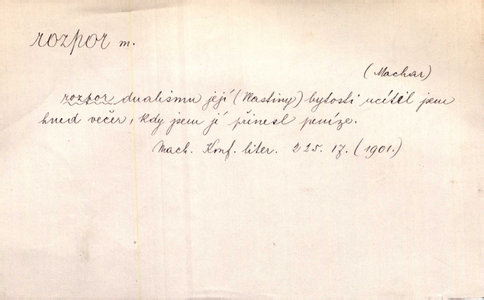 rozpor m.
(Machar)
rozpor dualismu její (Vlastiny) bytosti ucítil jsem
hned večer, kdy jsem jí přinesl peníze.
Mach. Konf. liter. 225. 17. (1901.)